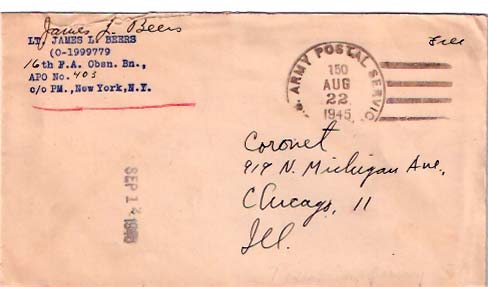 James L. Beers
LT. JAMES L. BEERS
(O-1999779
16th F.A. Obsn. Bn.,
APO No. 403
c/o PM., New York, N.Y.
Free
ARMY POSTAL SERVIC
150
AUG
22
1945
Coronet
919 N. Michigan Ave.,
Chicago, 11
Ill.
SEP 14 1945